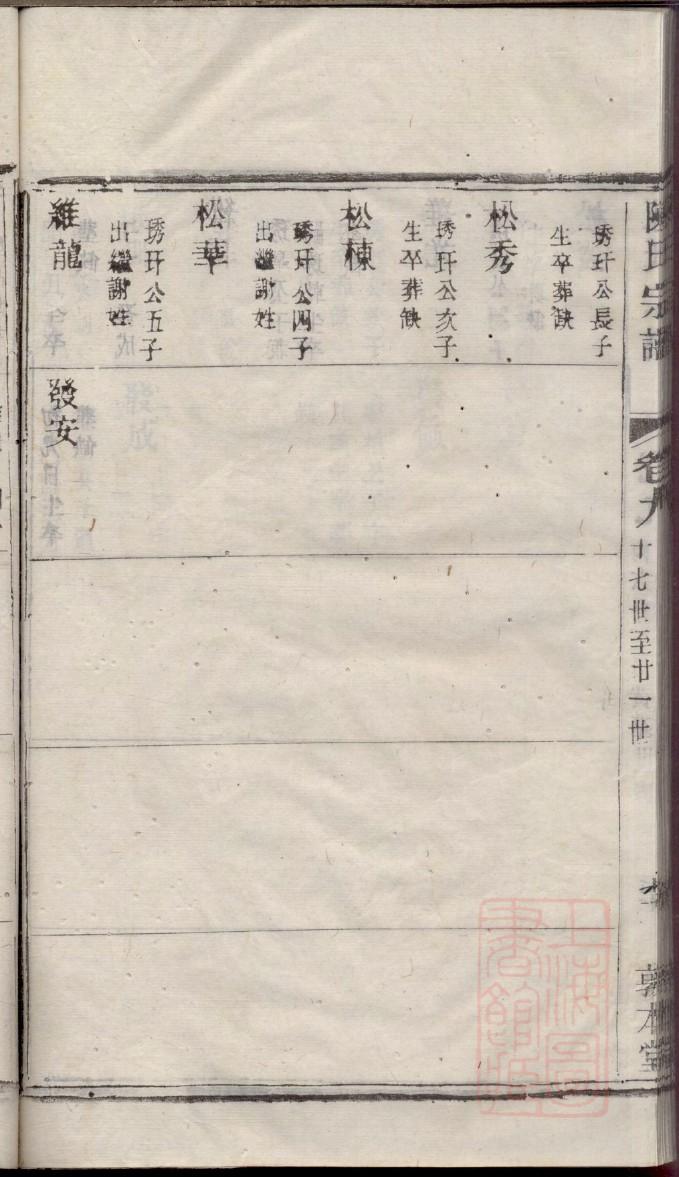 陳氏宗譜
卷九
十七世至廿一世
敦本堂
琇玕公長子
生卒葬缺
松秀
琇玕公次子
生卒葬缺
松棟
琇玕公四子
出繼謝姓
松華
琇玕公五子
出繼謝姓
維龍
發安
上海圖書館藏